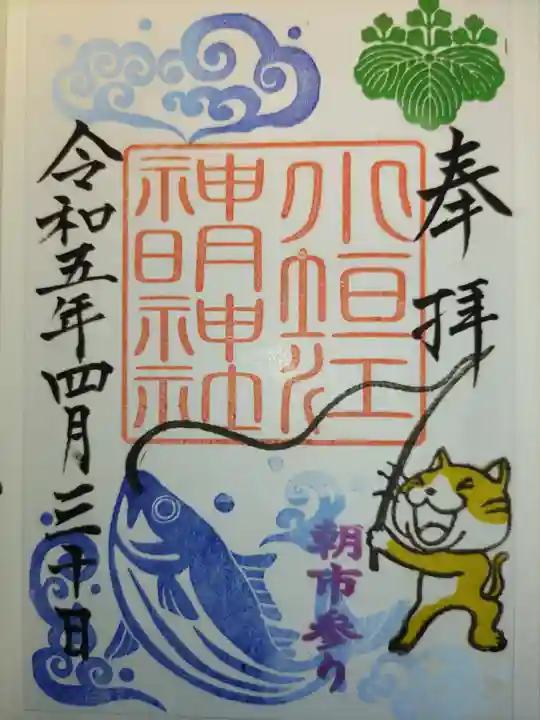 奉拝
小垣江
神明神社
朝市参り
令和五年四月三十日